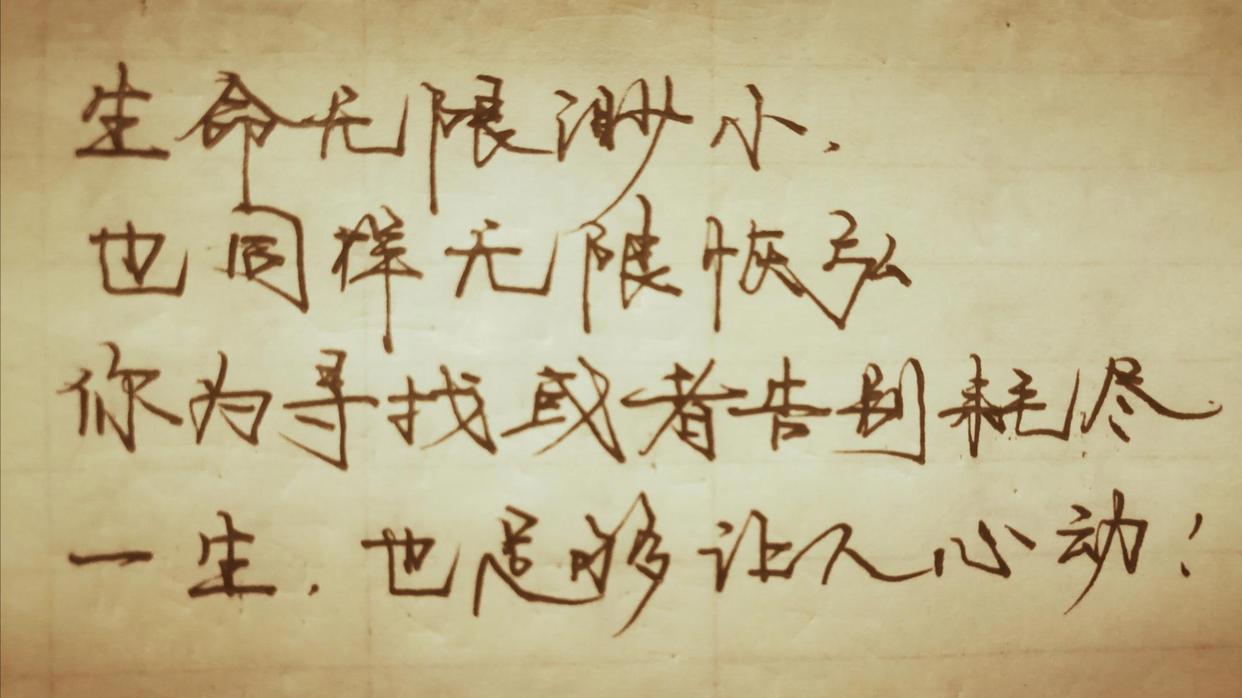 生命无限渺小,
也同样无限恢弘
你为寻找或者告别耗尽
一生.也足够让人心动!